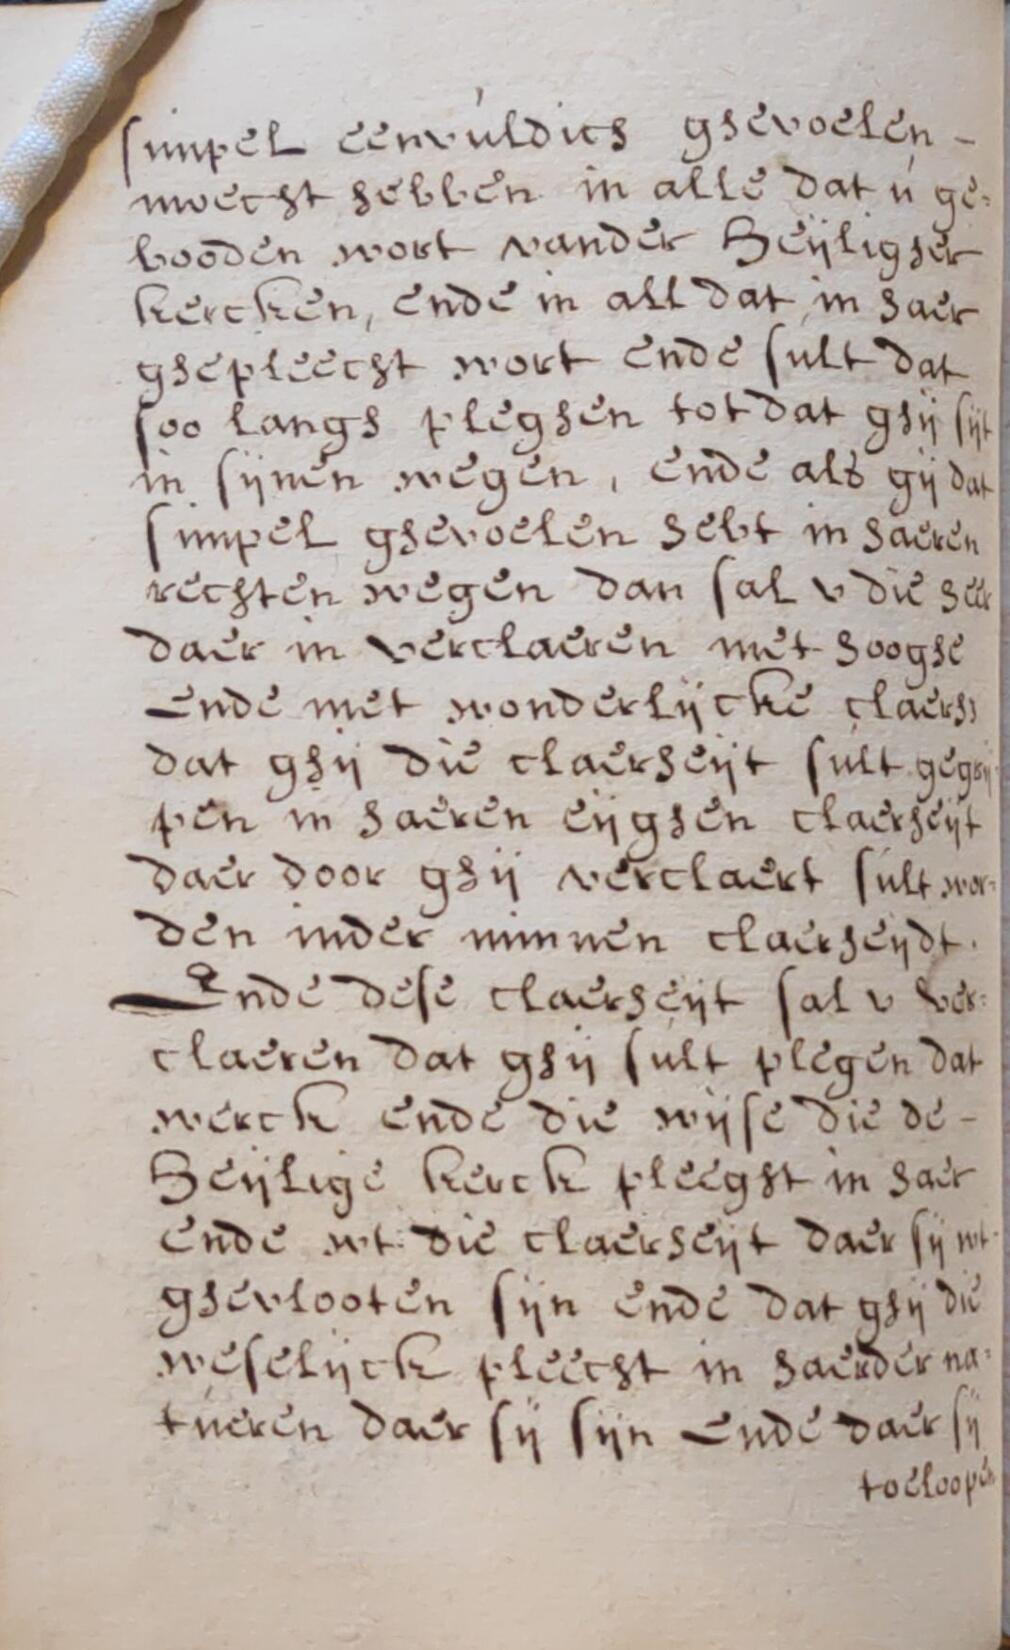 simpel eenvuldich ghevoelen -
moecht hebben in alle dat u ge-
booden wort vander Heijligher
kercken, ende in all dat in haer
ghepleecht wort ende sult dat
soo langh pleghen tot dat ghij sijt
in sijnen wegen, ende als gij dat
simpel ghevoelen hebt in haeren
rechten wegen dan sal v die heer
daer in verclaeren met hooghe
Ende met wonderlijcke claerh
dat ghij die claerheijt sult gegrij-
pen in haeren eijghen claerheijt
daer door ghij verclaert sult wor-
den inder minnen claerheijdt.
Ende dese claerheijt sal v ver-
claeren dat ghij sult plegen dat
werck ende die wijse die de -
Heijlige kerck pleeght in haer
ende wt die claerheijt daer sij wt-
ghevlooten sijn ende dat ghij die
weselijck pleecht in haerder na-
tueren daer sij sijn Ende daer sij
toeloopen